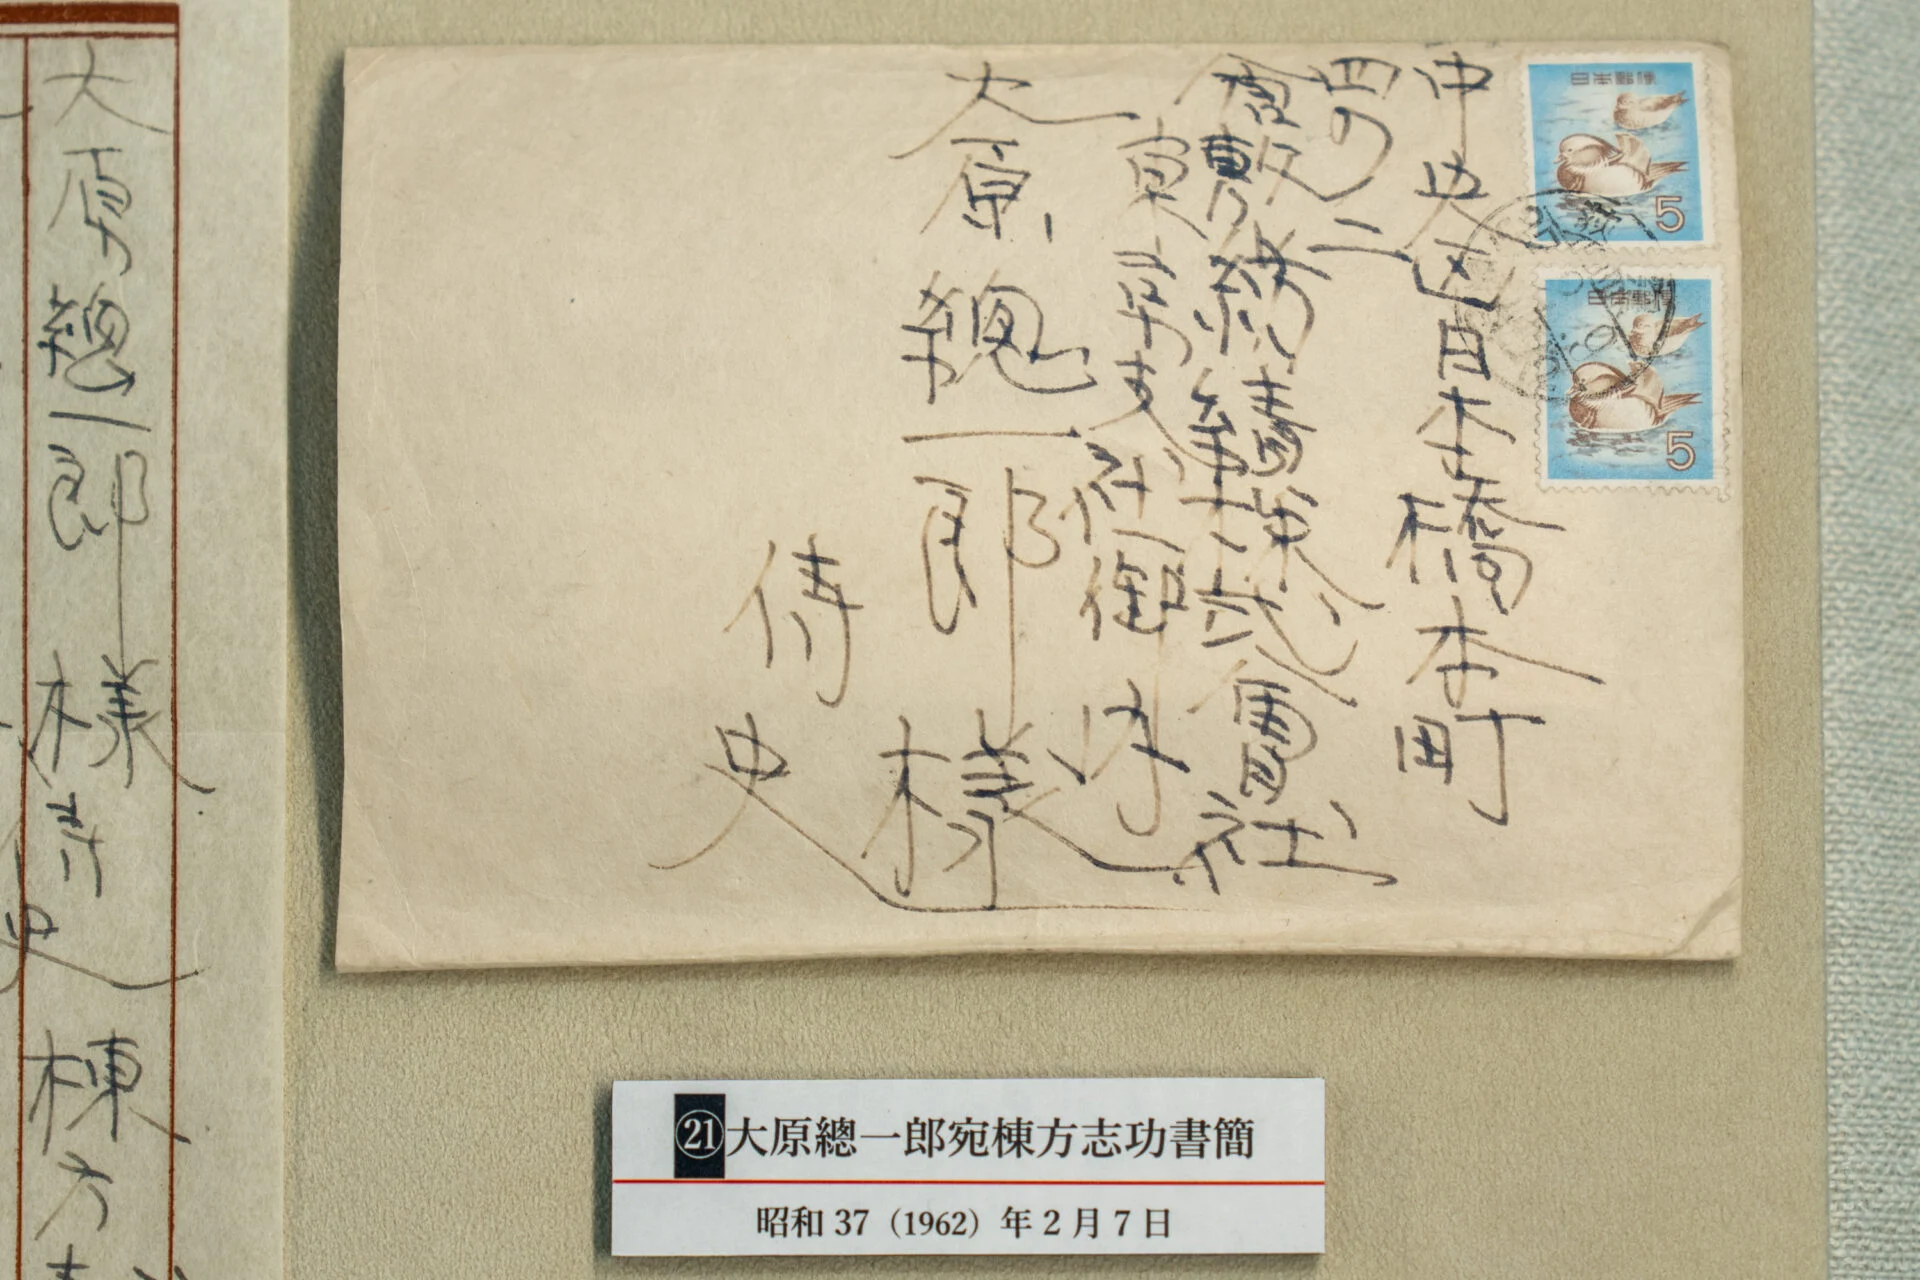 中央区日本橋本町
四の二
倉敷絹績株式會社
東京支社御内
大原總一郎様
侍史
日本郵便
5
日本郵便
5
大原總一郎様侍史
棟方
㉑大原總一郎宛棟方志功書簡
昭和 37（1962）年 2 月 7 日